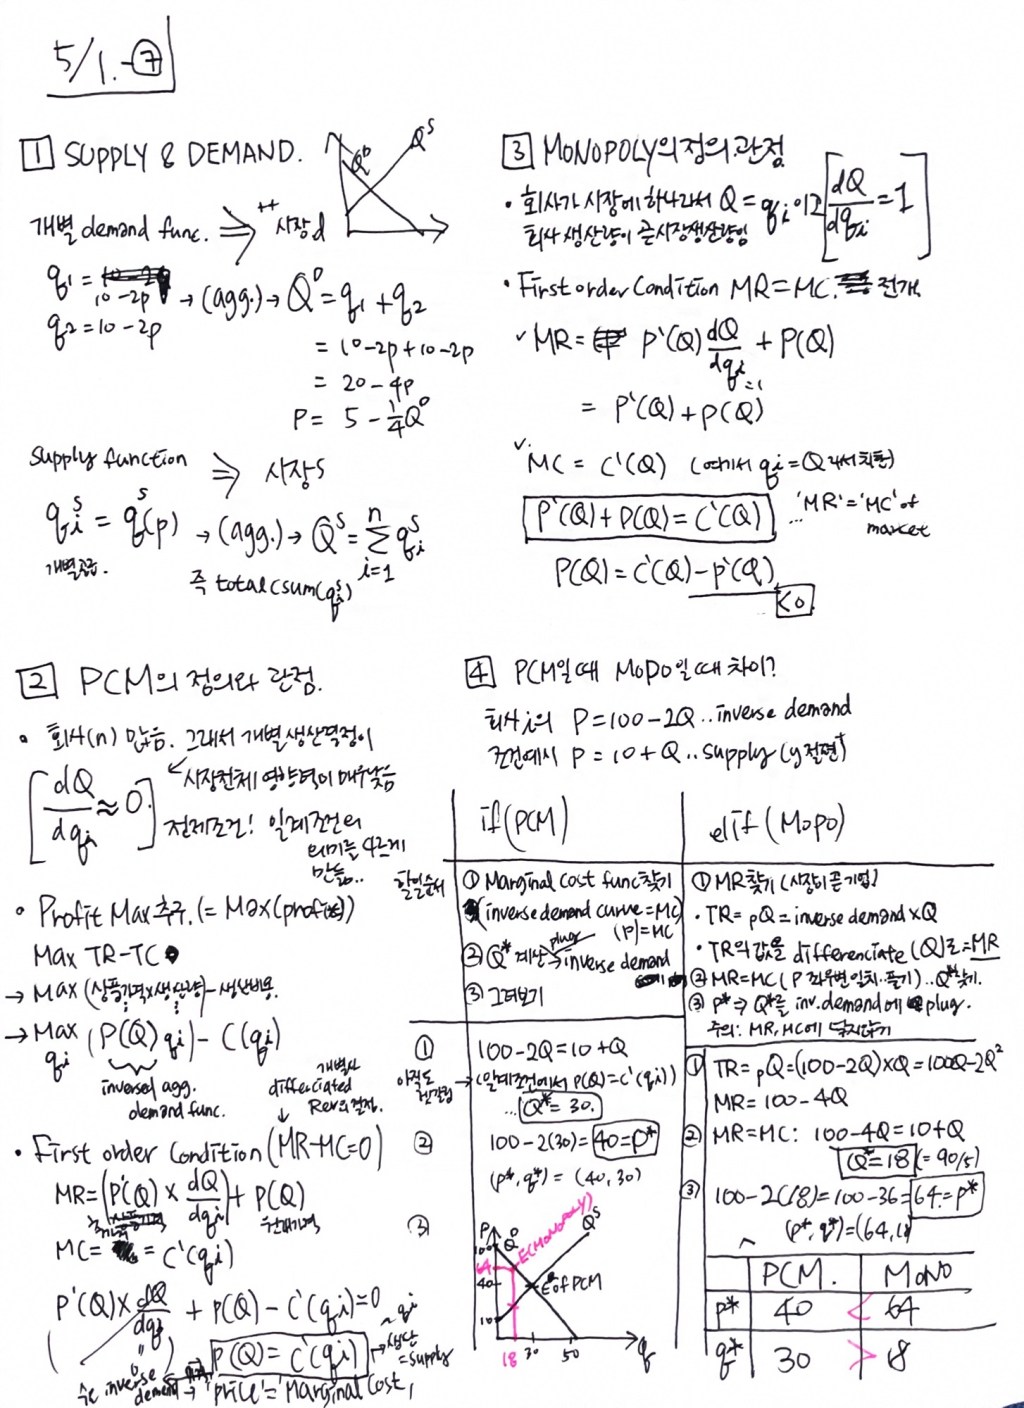 5/1.-⑦
1 SUPPLY & DEMAND.
Qᴰ
Qˢ
개별 demand func. ⇒ 시장d
q₁ = 10-2p
q₂ = 10-2p
→ (agg.) → Qᴰ = q₁ + q₂
= 10-2p+10-2p
= 20-4p
P = 5 - 1/4 Qᴰ
Supply function ⇒ 시장S
qᵢˢ = qˢ(p) → (agg.) → Qˢ = Σⁿᵢ₌₁ qᵢˢ
개별공급.
즉 total(sum(qᵢˢ))
2 PCM의 정의와 관점.
• 회사(n) 많음. 그래서 개별생산결정이
시장전체 영향력이 매우낮음
[dQ/dqᵢ ≈ 0.]
전제조건! 일계조건의
의미를 다르게
만듦..
• Profit Max추구. (= Max(profits))
Max TR-TC
→ Max (상품가격×생산량) - 생산비용.
→ Max (P(Q) qᵢ) - C(qᵢ)
qᵢ
inversed agg.
demand func.
개별사
differenciated
Rev의 결정.
• First order Condition (MR-MC=0)
MR = (P'(Q) × dQ/dqᵢ) + P(Q)
현재가격
MC = = C'(qᵢ)
P'(Q) × dQ/dqᵢ + P(Q) - C'(qᵢ) = 0
0
P(Q) = C'(qᵢ)
→ 생산
= supply
inverse
demand → 'price' = 'Marginal Cost'
3 MONOPOLY의 정의.관점
• 회사가 시장에 하나라서 Q = qᵢ이고 [dQ/dqᵢ = 1]
회사 생산량이 곧 시장생산량임
• First order Condition MR=MC. 전개
✓ MR = P'(Q) dQ/dqᵢ + P(Q)
=1
= P'(Q) + P(Q)
✓ MC = C'(Q) (여기서 qᵢ = Q라서 치환)
P'(Q) + P(Q) = C'(Q)
... 'MR' = 'MC' of
market
P(Q) = C'(Q) - P'(Q)
<0
4 PCM일때 MoPo일때 차이?
회사 i의 P = 100-2Q .. inverse demand
조건에서 P = 10+Q .. supply (y절편⁺)
if (PCM)
elif (MoPo)
할일순서
① Marginal cost func찾기
(inverse demand curve = MC)
(P) = MC
② Q* 계산 → inverse demand
plug
③ 그려보기
① MR찾기 (시장이 곧 기업!)
• TR = pQ = inverse demand × Q
• TR의값을 differenciate (Q)로 = MR
② MR=MC (P 좌우변 일치..풀기) .. Q*찾기.
③ P* ⇒ Q*를 inv.demand에 plug.
주의: MR, MC에 넣지않기
①
100-2Q = 10+Q
(일계조건에서 P(Q) = C'(qᵢ))
... Q* = 30.
②
100-2(30) = 40 = P*
(p*, q*) = (40, 30)
③
P
100
Qᴰ
E(MONOPOLY)
Qˢ
64
40
E of PCM
10
18
30
50
q
① TR = pQ = (100-2Q)×Q = 100Q-2Q²
MR = 100-4Q
② MR=MC: 100-4Q = 10+Q
Q* = 18 (= 90/5)
③ 100-2(18) = 100-36 = 64 = P*
(p*, q*) = (64, 18)
PCM. MONO
P* 40 < 64
q* 30 > 18